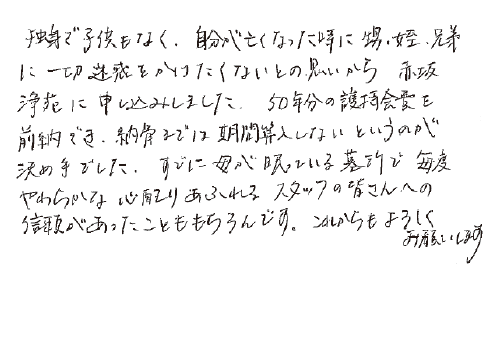 独身で子供もなく、自分が亡くなった時に甥、姪、兄弟
に一切迷惑をかけたくないとの思いから 赤坂
浄苑に申し込みしました。50年分の護持会費を
前納でき、納骨までは期間算入しないというのが
決め手でした。すでに母が眠っている墓所で毎度
やわらかな心配りあふれるスタッフの皆さんへの
信頼があったことももちろんです。これからもよろしく
お願いします